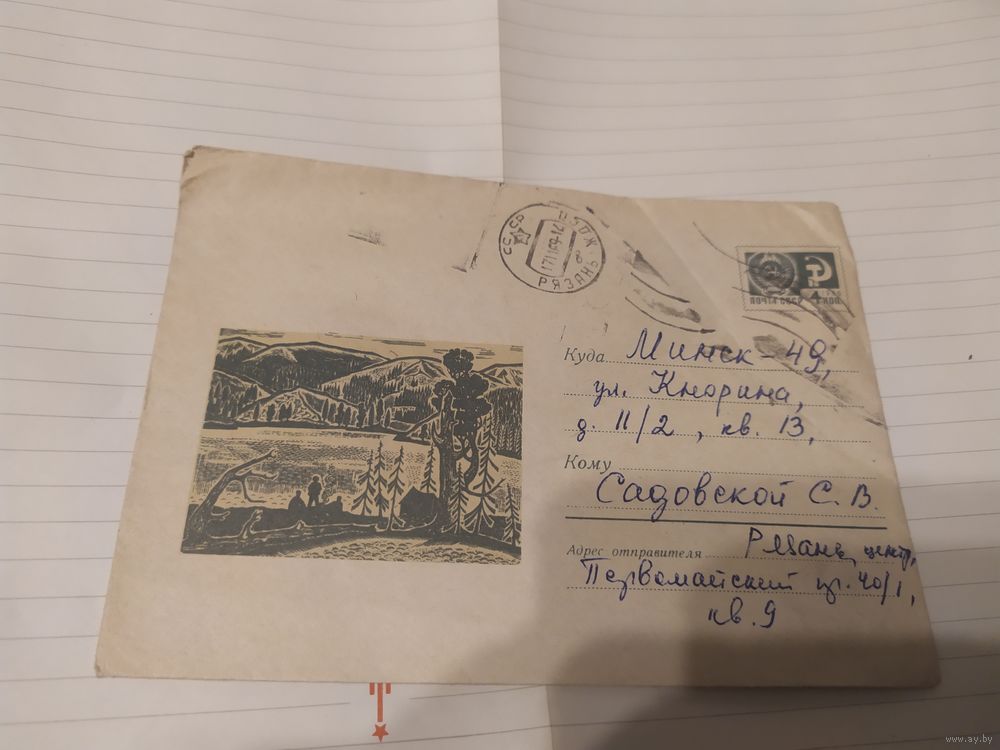 СССР
РЯЗАНЬ
ПОЧТА СССР 4 КОП
Куда Минск-49,
ул. Кнорина,
д. 11/2, кв. 13,
Кому
Садовской С. В.
Адрес отправителя Рязань, центр,
Первомайский пр. 40/1,
кв. 9
www.ay.by